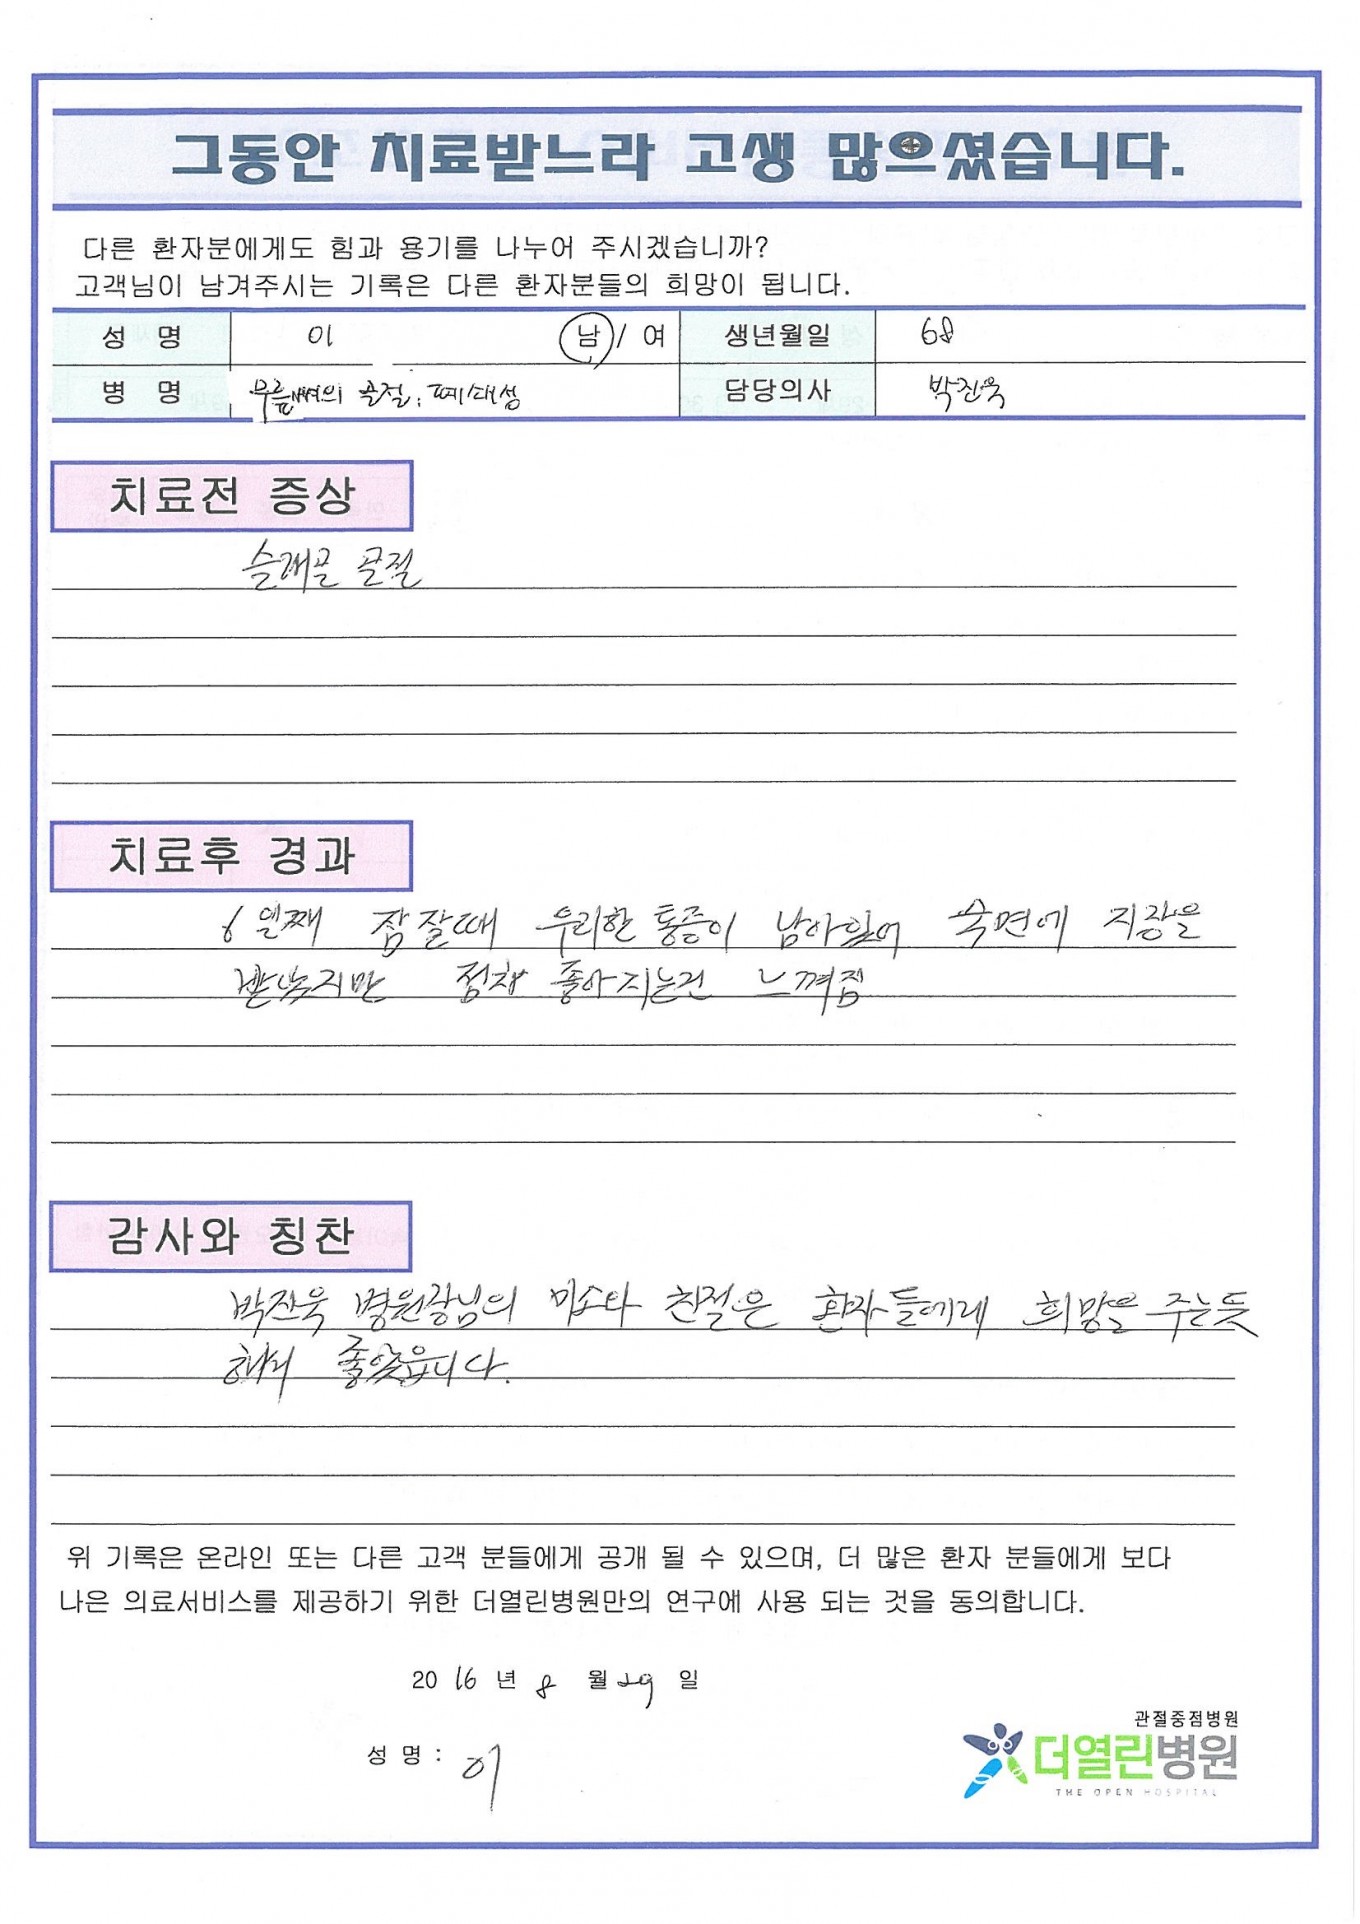 그동안 치료받느라 고생 많으셨습니다.
다른 환자분에게도 힘과 용기를 나누어 주시겠습니까?
고객님이 남겨주시는 기록은 다른 환자분들의 희망이 됩니다.
성 명 이 남 / 여 생년월일 68
병 명 무릎뼈의 골절, 폐쇄성 담당의사 박진욱
치료전 증상
슬개골 골절
치료후 경과
6일째 잠잘때 우리한 통증이 남아있어 숙면에 지장을
받낮지만 점차 좋아지는건 느껴짐
감사와 칭찬
박진욱 병원장님의 미소와 친절은 환자들에게 희망을 주는듯
해서 좋았읍니다.
위 기록은 온라인 또는 다른 고객 분들에게 공개 될 수 있으며, 더 많은 환자 분들에게 보다
나은 의료서비스를 제공하기 위한 더열린병원만의 연구에 사용 되는 것을 동의합니다.
2016 년 8 월 29 일
성 명 : 이
관절중점병원
더열린병원
THE OPEN HOSPITAL